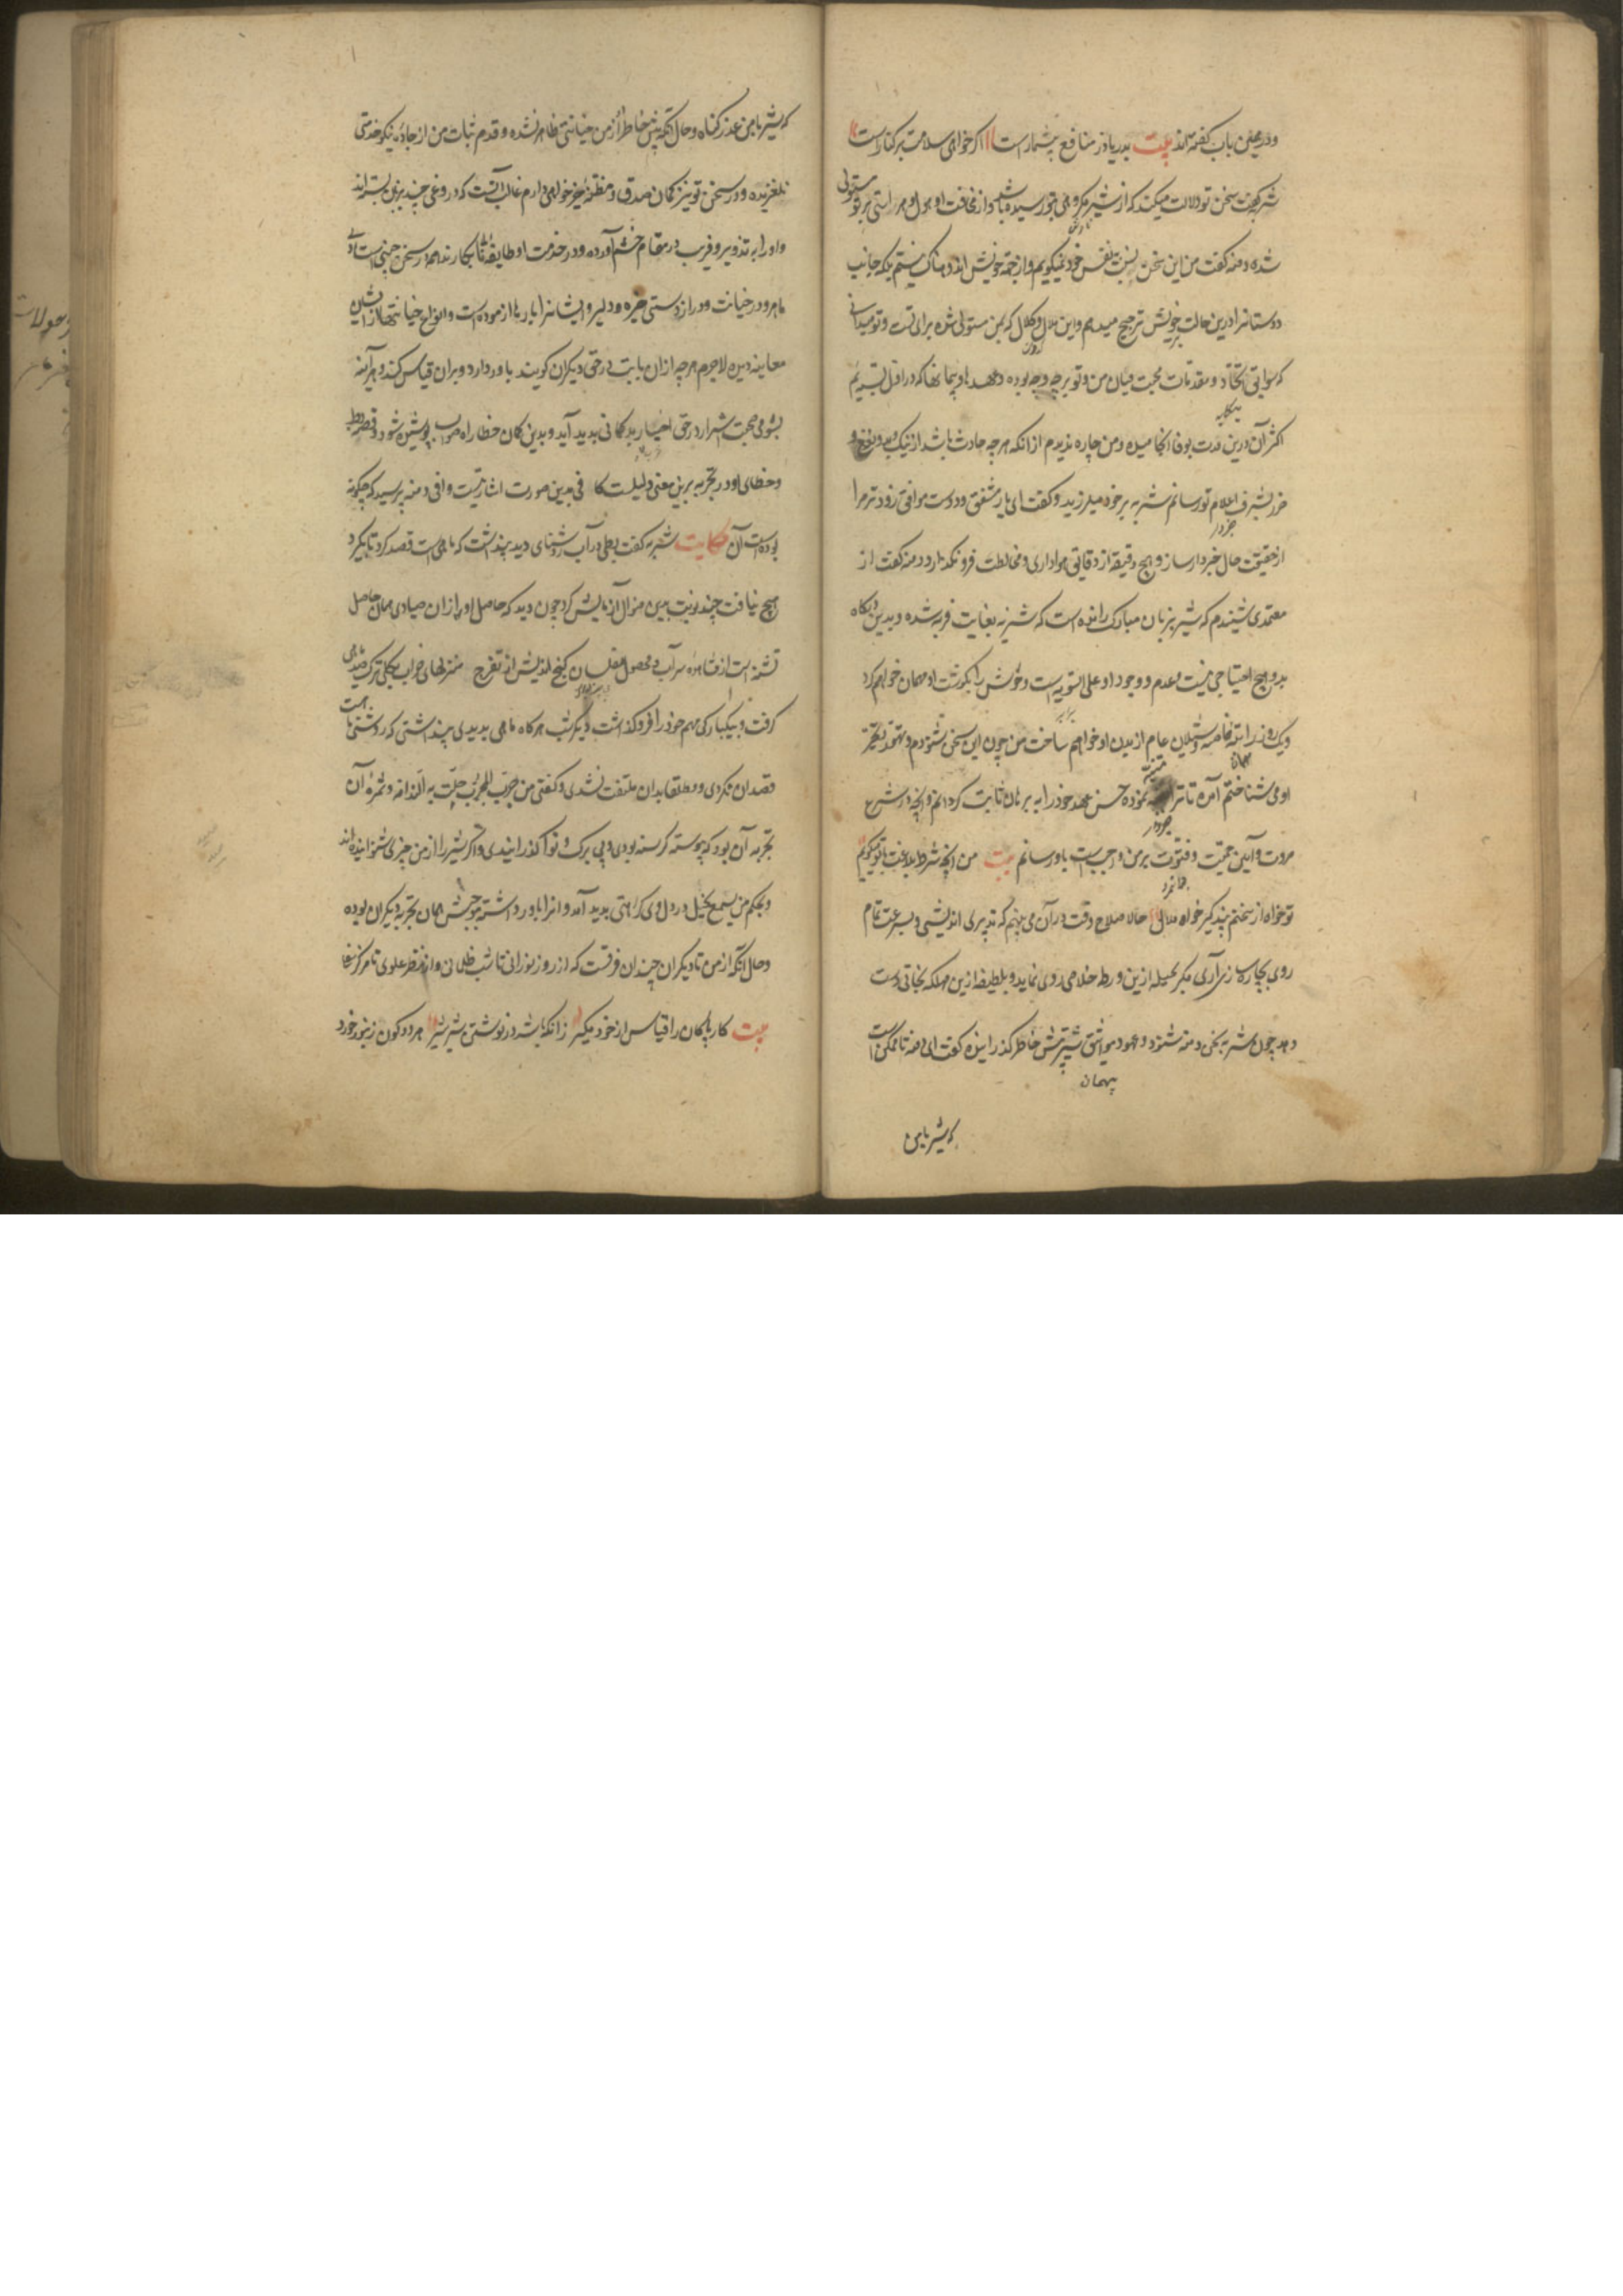 ودرهمین باب گفته‌اند بیت بدریا در منافع بیشمارست اگر خواهی سلامت بر کنارست
شنزبه گفت سخن تو دلالت میکند که از شیر مکروهی بتو رسیده باشد و از مخافت او هول و هراسی بر تو مستولی
شده دمنه گفت من این سخن بنسبت نفس خود نمیگویم و از جهة خویش اندوهناک نیستم بلکه جانب
دوستانرا درین حالت بر خویش ترجیح میدهم و این ملال و کلال که بمن مستولی شده برای تست و تو میدانی
که سوابق اتحاد و مقدمات محبت میان من و تو بر چه وجه بوده و عهدها و پیمانها که در اول بسته‌ایم
اکثر آن درین مدت بوفا انجامیده و من چاره ندیدم از آنکه هرچه حادث باشد از نیک و بد و نفع و
ضرر بشرف اعلام تو رسانم شنزبه بر خود بلرزید و گفت ای یار مشفق و دوست موافق زودتر مرا
از حقیقت حال خبردار ساز و هیچ دقیقه از دقایق هواداری و مخالطت فرو نگذار دمنه گفت از
معتمدی شنیدم که شیر بزبان مبارک رانده است که شنزبه بغایت فربه شده و بدین درگاه
بدو هیچ احتیاجی نیست و عدم و وجود او علی السویه است وحوش را بگوشت او مهمان خواهم کرد
ویک روز راتبه خاصه و شیلان عام از بدن او خواهم ساخت من چون این سخن شنودم و تهور و تجبر
او می‌شناختم آمدم تا ترا متنبه نموده حسن عهد خود را به برهان ثابت گردانم و آنچه در شرع
مروت و آیین حمیت و فتوت بر من واجب است باور سانم بیت من آنچه شرط بلاغت با تو میگویم
تو خواه از سخنم پند گیر خواه ملال حالا صلاح وقت در آن می‌بینم که تدبیری اندیشی و بسرعت تمام
روی بچاره سازی آری مگر بحیله ازین ورطه خلاصی روی نماید و بلطیفه ازین مهلکه نجاتی دست
دهد چون شنزبه سخن دمنه شنود و عهود و مواثیق شیر پیش خاطر گذرانید گفت ای دمنه ناممکن است
پیمان
که شیر با من
که شیر با من عذر کناه وحال آنکه پیش خاطر او از من خیانتی ظاهر نشده و قدم ثبات من از جاده نیکو خدمتی
نلغزیده و در سخن تو نیز گمان صدق و مظنه خیرخواهی دارم غالبا آنست که دروغی چند بر من بسته‌اند
و او را به تزویر و فریب در مقام خشم آورده و در خدمت او طایفه نابکارند همه در سخن چینی استاد و
ماهر و در خیانت و دراز دستی خیره و دلیر و ایشانرا بارها آزموده است و انواع خیانتها از ایشان
معاینه دیده لاجرم هرچه از آن بابت در حق دیگران گویند باور دارد و بر آن قیاس کند و هر آینه
بشومی صحبت اشرار در حق اخیار بد گمانی بدید آید و بدین گمان خطا راه صواب پوشیده شود و قصه بط
و خطای او در تجربه برین معنی دلیلست کافی بدین صورت اشارتیست وافی دمنه پرسید که چگونه
بوده است آن حکایت شنزبه گفت بطی در آب روشنای دید پنداشت که ماهی است قصد کرد تا بگیرد
هیچ نیافت چند نوبت برین منوال آزمایش کرد چون دید که حاصل او از آن صیادی همان حاصل
تشنه است از مشاهده سراب و محصول مفلسان گنج اندیش از تفرج منزلهای خراب بکلی ترک صید ماهی
گرفت و بیکبارگی مهم خود را فرو گذاشت دیگر شب هرگاه ماهی بدیدی پنداشتی که روشنی ماه است
قصد آن نکردی و مطلقا بدان ملتفت نشدی و گفتی من جرب المجرب حلت به الندامه و ثمره آن
تجربه آن بود که پیوسته گرسنه بودی و بی برگ و نوا گذرانیدی و اگر شیر را از من چیزی شنوانیده‌اند
و بحکم من یسمع یخل در دل وی کراهتی بدید آمد و آنرا باور داشته موجبش همان تجربه دیگران بوده
وحال آنکه از من تا دیگران چندان فرقست که از روز نورانی تا شب ظلمانی و از منظر علوی تا مرکز سفلی
بیت کار پاکان را قیاس از خود مگیر زانکه باشد در نوشتن شیر شیر هر دو گون زنبور خورد